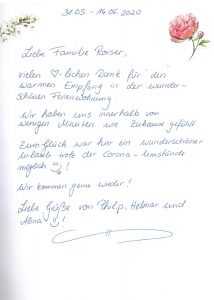 31.05 - 14.06.2020
Liebe Familie Rorser,
vielen ♡-lichen Dank für den
warmen Empfang in der wunder-
schönen Ferienwohnung.
Wir haben uns innerhalb von
wenigen Minuten wie Zuhause gefühlt
Zum Glück war hier ein wunderschöner
Urlaub trotz der Corona-Umstände
möglich !
Wir kommen gerne wieder!
Liebe Grüße von Philip, Helmar und
Alina !